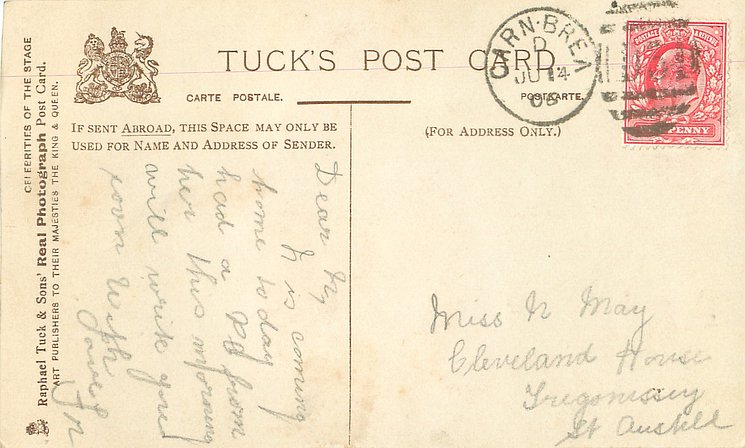 CELEBRITIES OF THE STAGE
Raphael Tuck & Sons' Real Photograph Post Card.
ART PUBLISHERS TO THEIR MAJESTIES THE KING & QUEEN.
TUCK'S POST CARD
CARTE POSTALE.
POSTKARTE.
IF SENT ABROAD, THIS SPACE MAY ONLY BE
USED FOR NAME AND ADDRESS OF SENDER.
(FOR ADDRESS ONLY.)
CARN-BREA
D
JU 14
POSTAGE
PENNY
Dear
is coming
home to day
had a from
her this morning
will write you
soon With
Love
Miss N May
Cleveland House
Tregonissey
St Austell